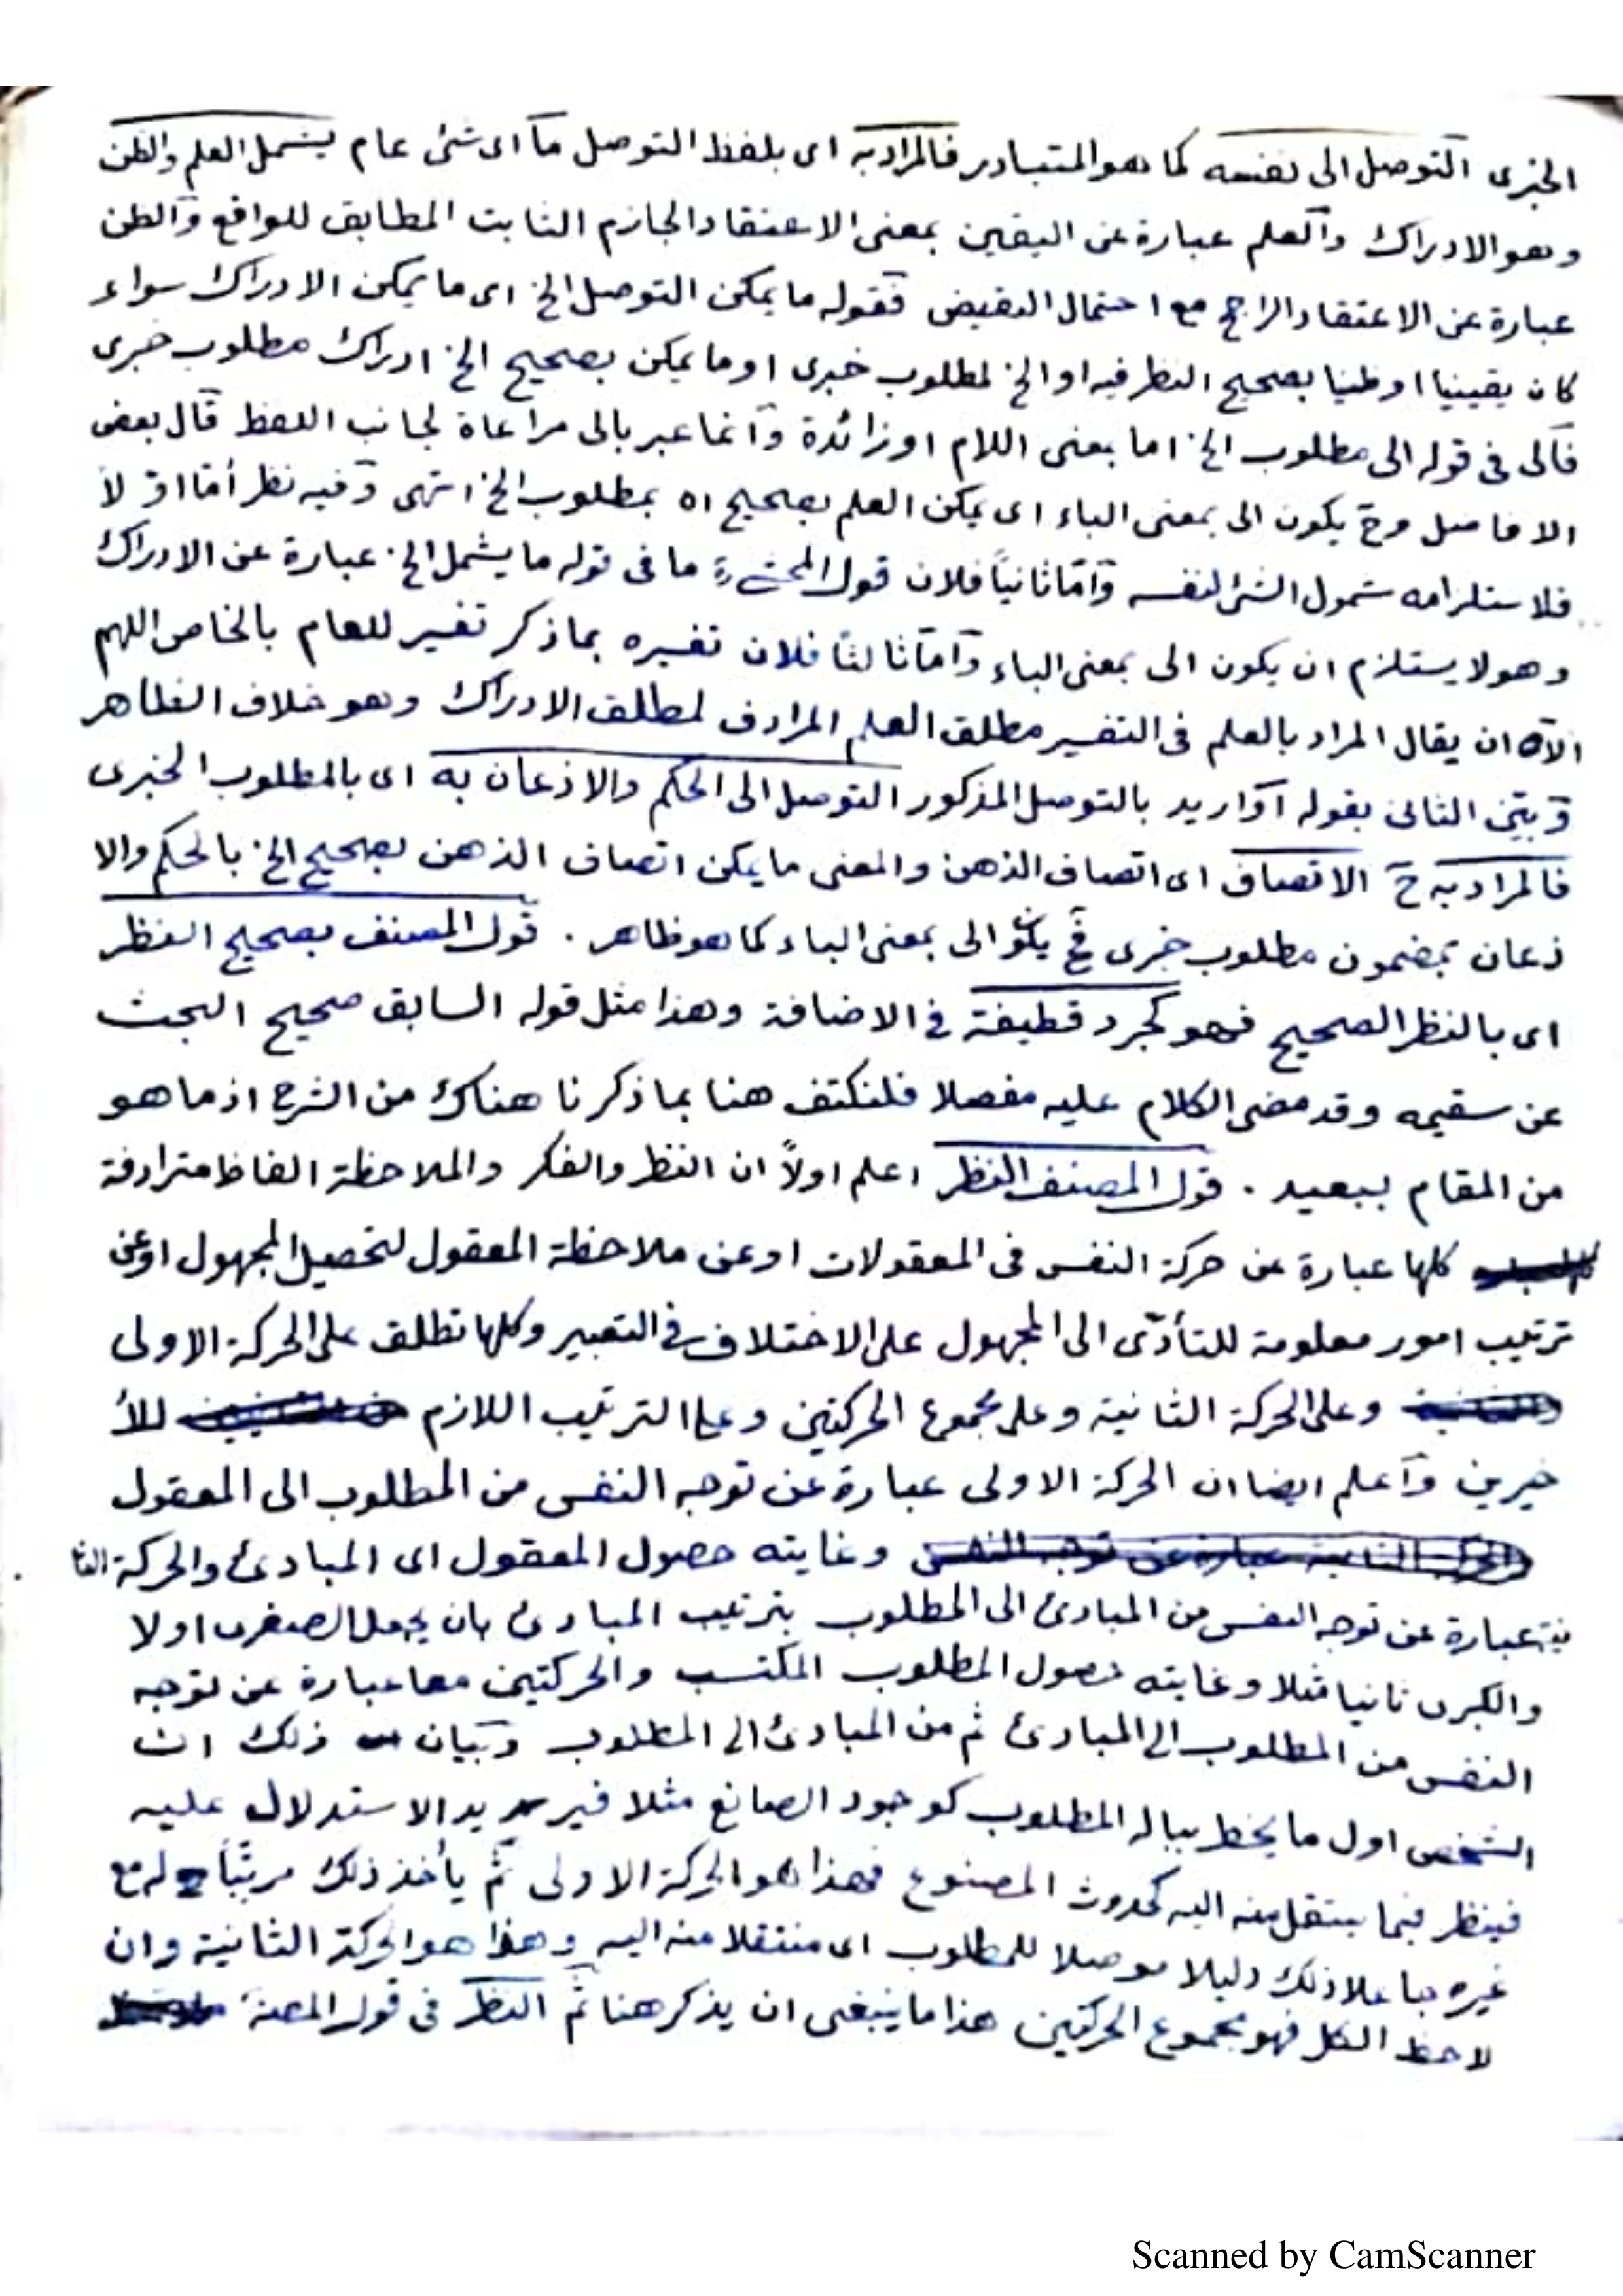 الخبرى التوصل الى نفسه كما هو المتبادر فالمراد به اى بلفظ التوصل ما اى شئ عام يشمل العلم والظن
وهو الادراك والعلم عبارة عن اليقين بمعنى الاعتقاد الجازم الثابت المطابق للواقع والظن
عبارة عن الاعتقاد الراجح مع احتمال النقيض فقوله ما يمكن التوصل الخ اى ما يمكن الادراك سواء
كان يقينيا او ظنيا بصحيح النظر فيه او الخ لمطلوب خبرى او ما يمكن بصحيح الخ ادراك مطلوب خبرى
فالى فى قوله الى مطلوب الخ اما بمعنى اللام او زائدة وانما عبر بالى مراعاة لجانب اللفظ قال بعض
الافاضل وح يكون الى بمعنى الباء اى يمكن العلم بصحيح اه بمطلوب الخ انتهى وفيه نظر أما اولا
فلاستلزامه شمول الشئ لنفسه وأما ثانياً فلان قول المحشى ما فى قوله ما يشمل الخ عبارة عن الادراك
وهو لا يستلزم ان يكون الى بمعنى الباء وأما ثالثاً فلان تفسيره بما ذكر تفسير للعام بالخاص اللهم
الا ان يقال المراد بالعلم فى التفسير مطلق العلم المرادف لمطلق الادراك وهو خلاف الظاهر
وبين الثانى بقوله او اريد بالتوصل المذكور التوصل الى الحكم والاذعان به اى بالمطلوب الخبرى
فالمراد به ح الاتصاف اى اتصاف الذهن والمعنى ما يمكن اتصاف الذهن بصحيح الخ بالحكم والا
ذعان بمضمون مطلوب خبرى فح يكون الى بمعنى الباء كما هو ظاهر . قول المصنف بصحيح النظر
اى بالنظر الصحيح فهو كجرد قطيفة فى الاضافة وهذا مثل قوله السابق صحيح البحث
عن سقيمه وقد مضى الكلام عليه مفصلا فلنكتف هنا بما ذكرنا هناك من الشرح اذ ما هو
من المقام ببعيد . قول المصنف النظر اعلم اولاً ان النظر والفكر والملاحظة الفاظ مترادفة
كلها عبارة عن حركة النفس فى المعقولات او عن ملاحظة المعقول لتحصيل المجهول او عن
ترتيب امور معلومة للتأدّى الى المجهول على الاختلاف فى التعبير وكلها تطلق على الحركة الاولى
وعلى الحركة الثانية وعلى مجموع الحركتين وعلى الترتيب اللازم للأ
خيرين واعلم ايضا ان الحركة الاولى عبارة عن توجه النفس من المطلوب الى المعقول
وغايته حصول المعقول اى المبادئ والحركة الثا
نية عبارة عن توجه النفس من المبادئ الى المطلوب بترتيب المبادئ بان يجعل الصغرى اولا
والكبرى ثانيا مثلا وغايته حصول المطلوب المكتسب والحركتين معا عبارة عن توجه
النفس من المطلوب الى المبادئ ثم من المبادئ الى المطلوب وبيان ذلك ان
الشخص اول ما يخطر بباله المطلوب كوجود الصانع مثلا فيريد الاستدلال عليه
فينظر فيما ينتقل منه اليه كحدوث المصنوع فهذا هو الحركة الاولى ثم يأخذ ذلك مرتباً له مع
غيره جاعلا ذلك دليلا موصلا للمطلوب اى منتقلا منه اليه وهذا هو الحركة الثانية وان
لاحظ الكل فهو مجموع الحركتين هذا ما ينبغى ان يذكر هنا ثم النظر فى قول المصنف
Scanned by CamScanner